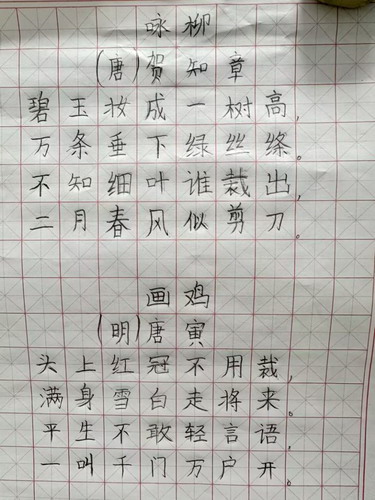 咏柳
(唐)贺知章
碧玉妆成一树高,
万条垂下绿丝绦。
不知细叶谁裁出,
二月春风似剪刀。
画鸡
(明)唐寅
头上红冠不用裁,
满身雪白走将来。
平生不敢轻言语,
一叫千门万户开。